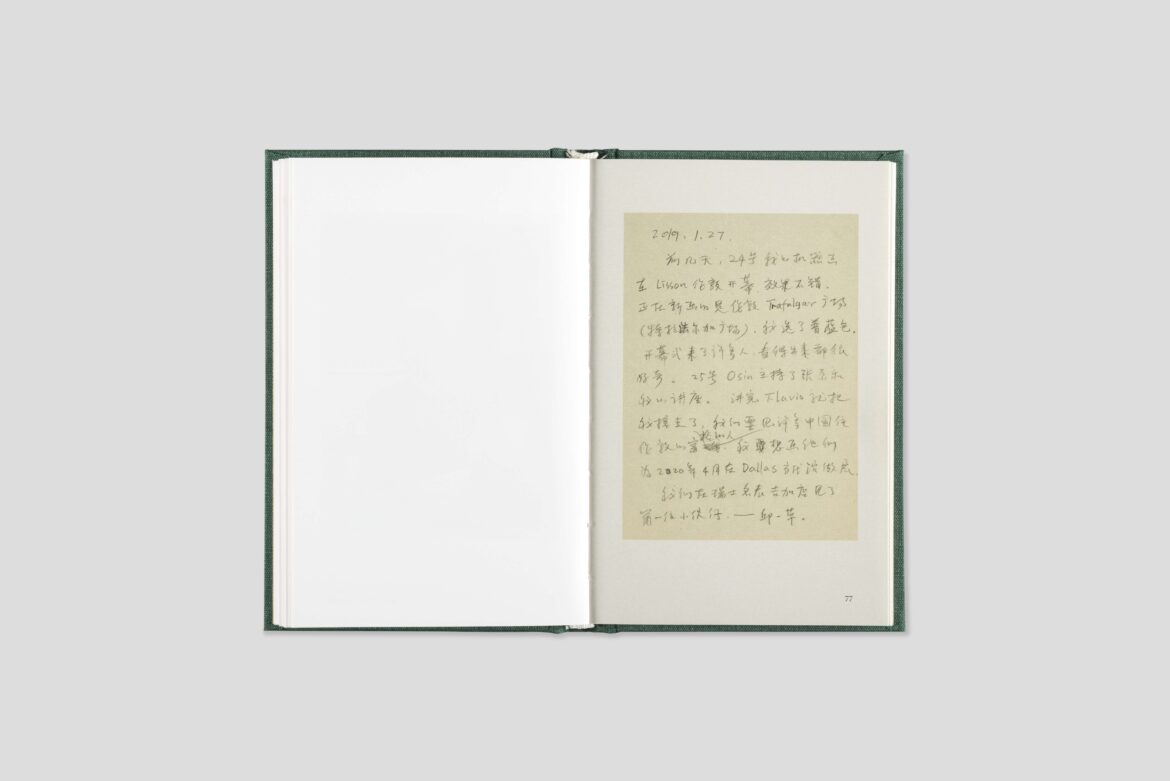 2019. 1. 27.
前几天，24号我的机器画
在 Lisson 伦敦开幕. 效果不错.
正在新画的是伦敦 Trafalgar 广场
(特拉法尔加广场), 我选了普蓝色.
开幕式来了许多人, 看得出来都很
好奇。 25号 Osin 主持了张 和
我的讲座。 讲完 Flavia 就把
我接走了, 我们要见许多中国住
伦敦的 . 我 想画他们
为2020年4月在 Dallas 当代馆做展.
我们在瑞士名表 店见了
第一位小伙仔. ——
77